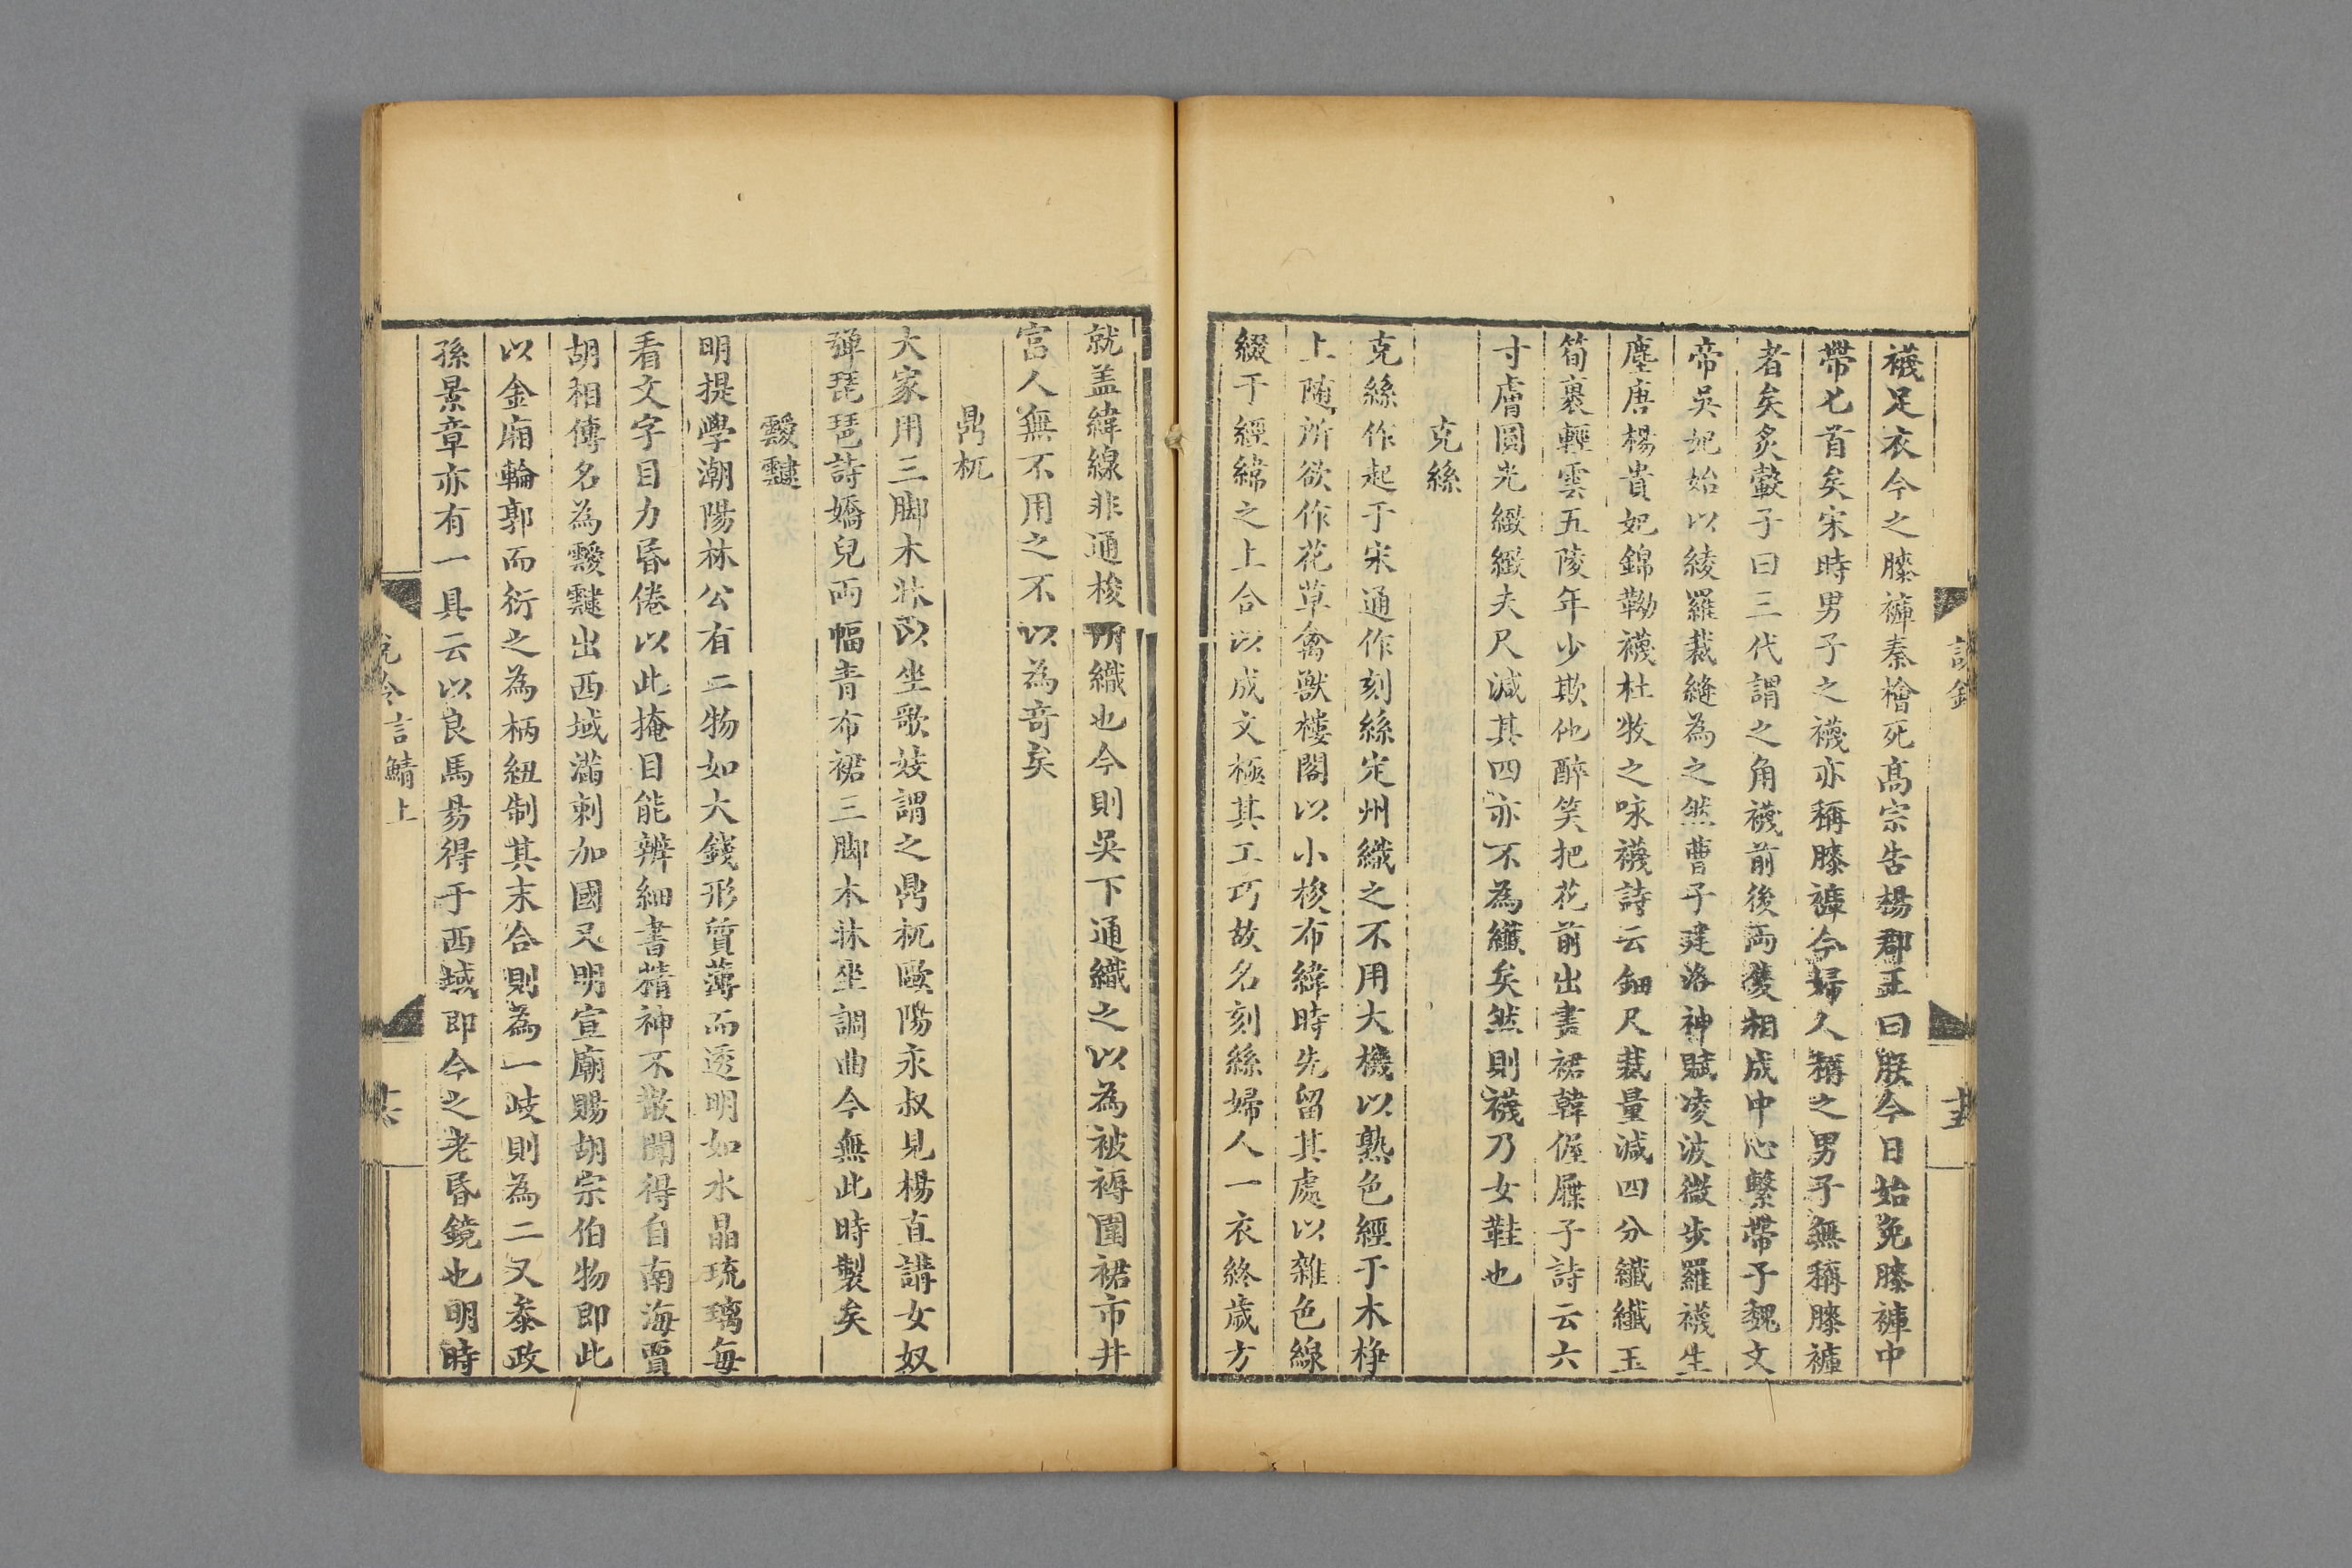 襪足衣今之膝褲秦檜死高宗告楊郡王曰朕今日始免膝褲中
帶匕首矣宋時男子之襪亦稱膝褲今婦人稱之男子無稱膝褲
者矣炙轂子曰三代謂之角襪前後両隻相成中心繫帶子魏文
帝吳妃始以綾羅裁縫為之然曹子建洛神賦凌波微步羅襪生
塵唐楊貴妃錦靿襪杜牧之咏襪詩云鈿尺裁量減四分纖纖玉
筍裹輕雲五陵年少欺他醉笑把花前出畫裙韓偓屧子詩云六
寸膚圓光緻緻夫尺減其四亦不為纖矣然則襪乃女鞋也
克絲
克絲作起于宋通作刻絲定州織之不用大機以熟色經于木棦
上随所欲作花草禽獸樓閣以小梭布緯時先留其處以雜色線
綴于經緯之上合以成文極其工巧故名刻絲婦人一衣終歲方
就盖緯線非通梭所織也今則吳下通織之以為被褥圍裙市井
富人無不用之不以為竒矣
鼎杌
大家用三脚木牀以坐歌妓謂之鼎杌歐陽永叔見楊直講女奴
彈琵琶詩嬌兒両幅青布裙三脚木牀坐調曲今無此時製矣
靉靆
明提學潮陽林公有二物如大錢形質薄而透明如水晶琉璃每
看文字目力昏倦以此掩目能辨細書精神不散聞得自南海賈
胡相傳名為靉靆出西域滿剌加國又明宣廟賜胡宗伯物即此
以金廂輪郭而衍之為柄紐制其末合則為一岐則為二又叅政
孫景章亦有一具云以良馬易得于西域即今之老昏鏡也明時
言鯖上